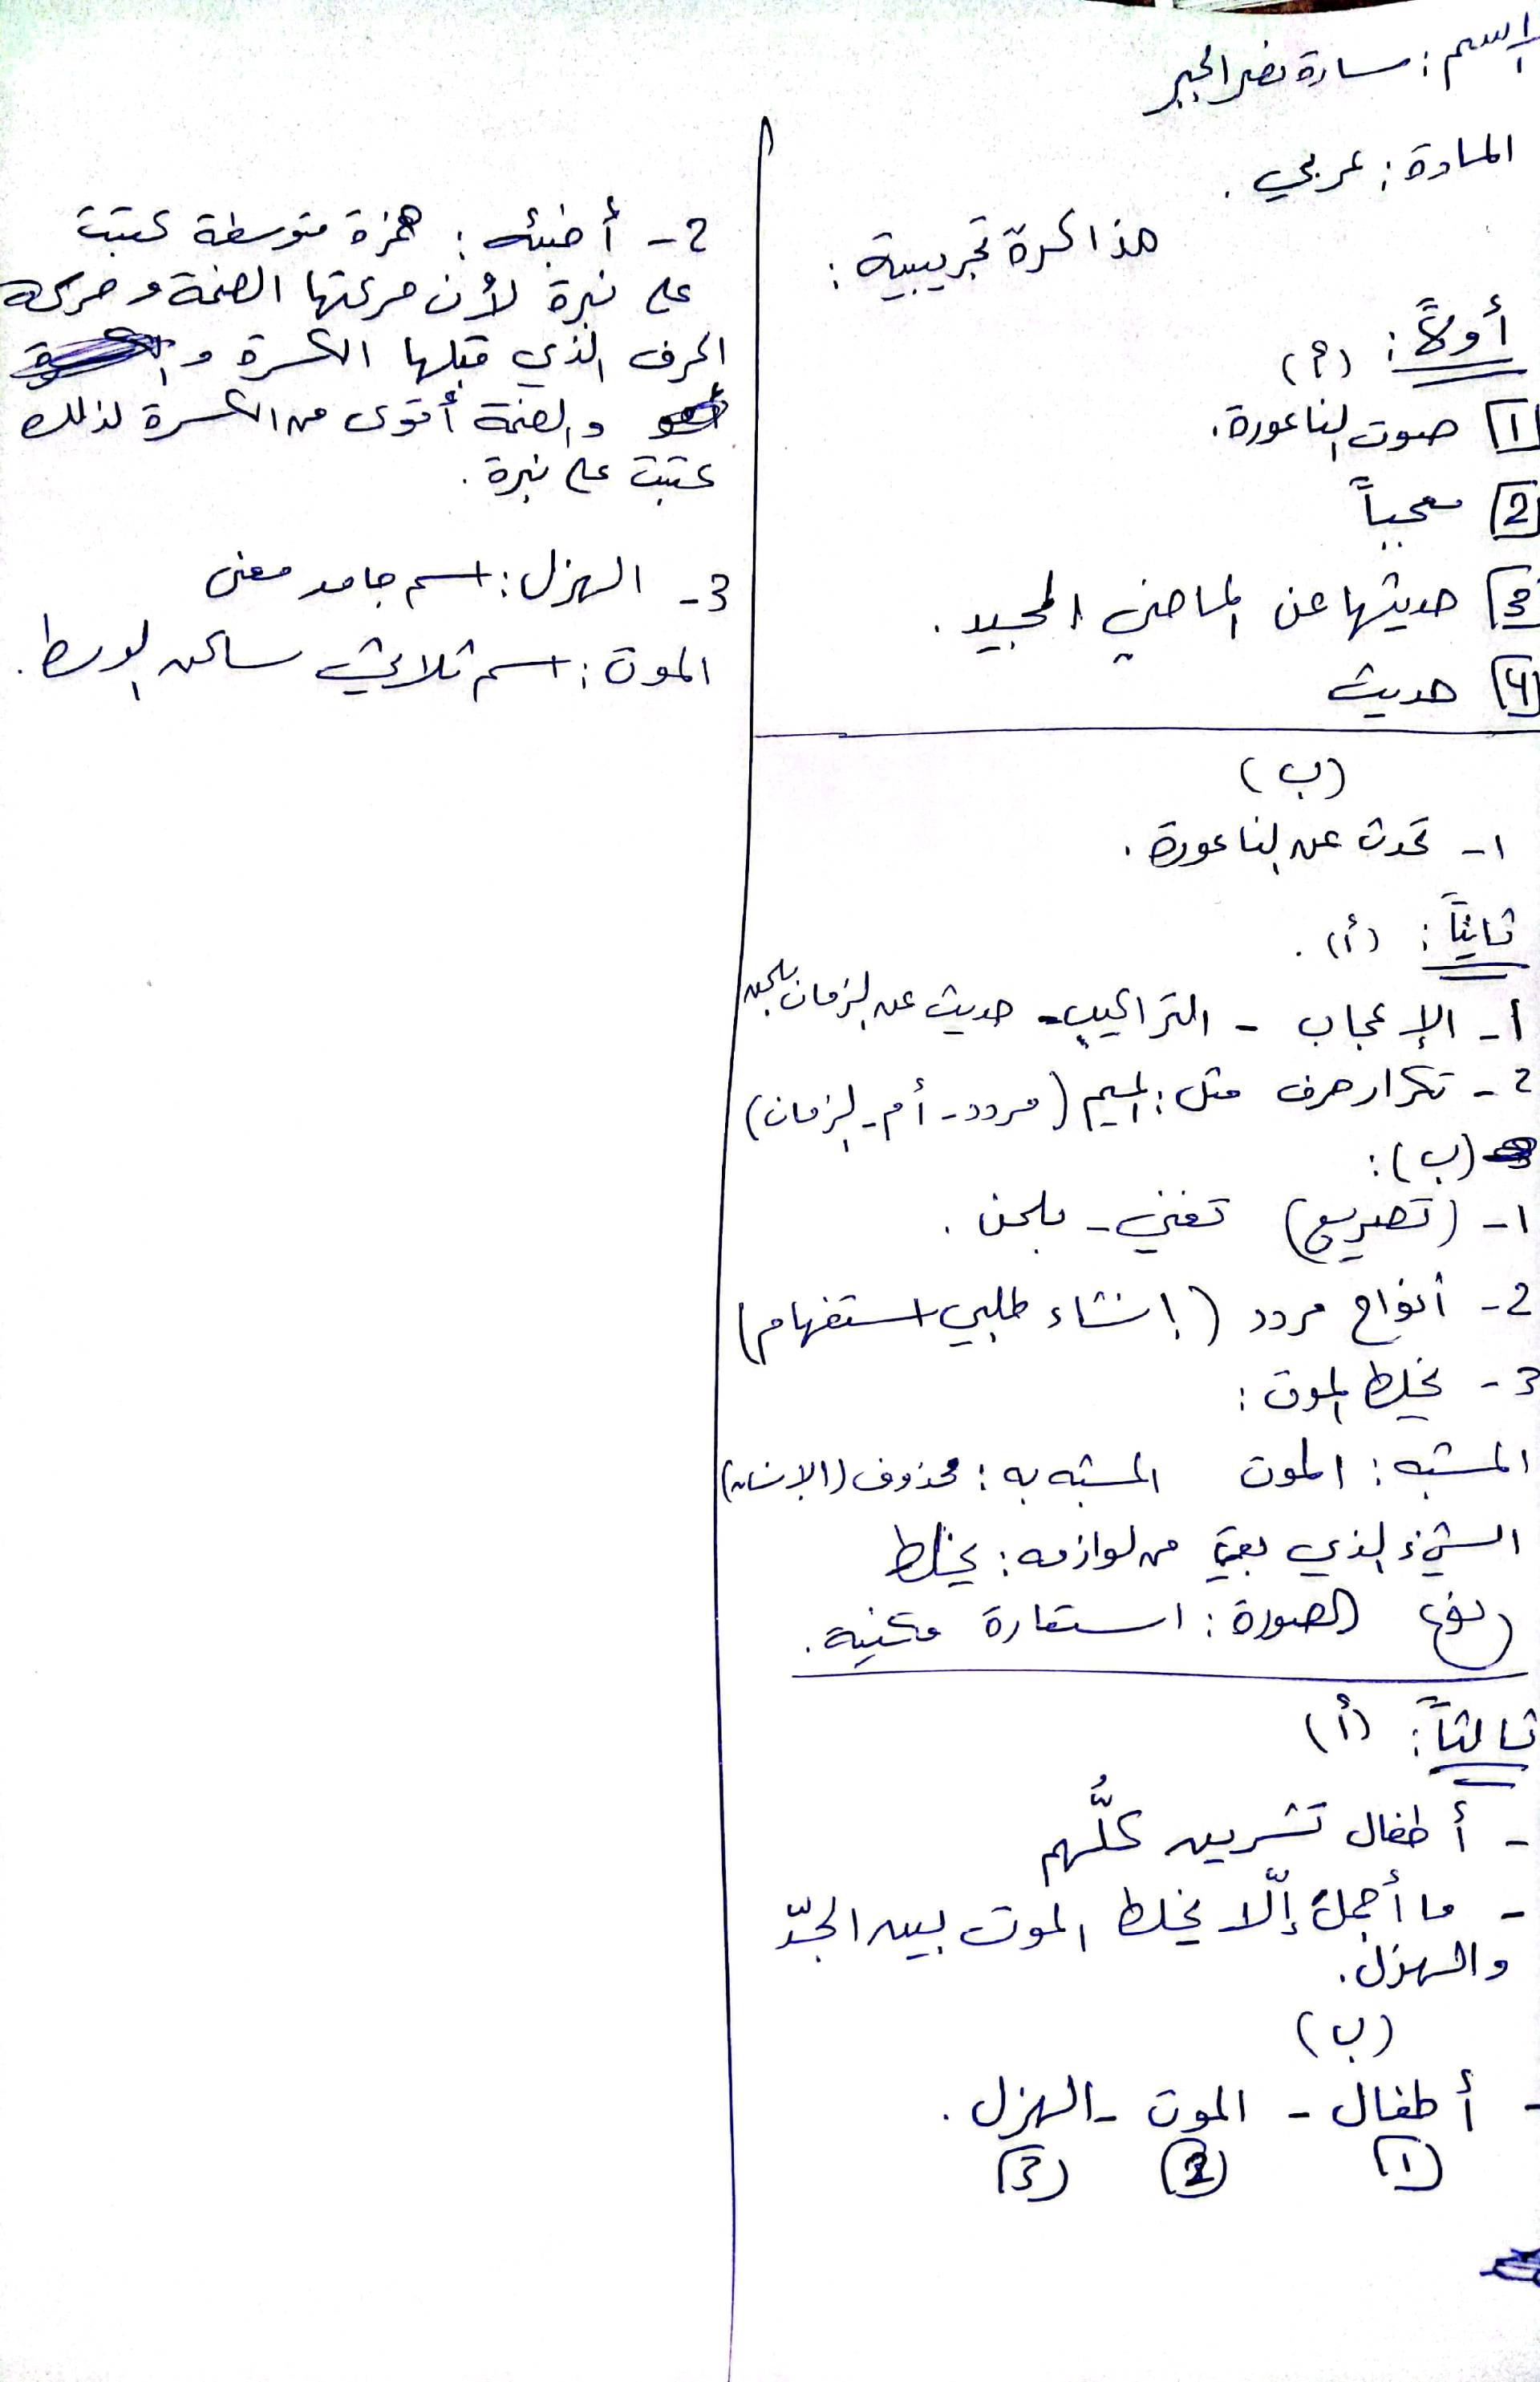 الاسم : سارة نصر الجبر
المادة : عربي .
مذاكرة تجريبية :
أولاً : (أ)
1 صوت الناعورة .
2 معجباً
3 حديثها عن الماضي المجيد .
4 حديث
(ب)
1- تحدث عن الناعورة .
ثانياً : (أ) .
1- الإعجاب - التراكيب - حديث عن الزمان بلحن
2- تكرار حرف مثل : الميم (مردد - أم - الزمان)
(ب) :
1- (تصريع) تغني - بلحن .
2- أنواح مردد (إنشاء طلبي استفهام)
3- يخلط الموت :
المشبه : الموت المشبه به : محذوف (الإنسان)
الشيء الذي بقي من لوازمه : يخلط
نوع الصورة : استعارة مكنية .
ثالثاً : (أ)
- أطفال تشرين كلُّهم
- ما أجمل إلّا يخلط الموت بين الجدّ
والهزل .
(ب)
- أطفال - الموت - الهزل .
(1) (2) (3)
2- أخبئه : همزة متوسطة كتبت
على نبرة لأن حركتها الضمة وحركة
الحرف الذي قبلها الكسرة
والضمة أقوى من الكسرة لذلك
كتبت على نبرة .
3- الهزل : اسم جامد معنى
الموت : اسم ثلاثي ساكن الوسط .